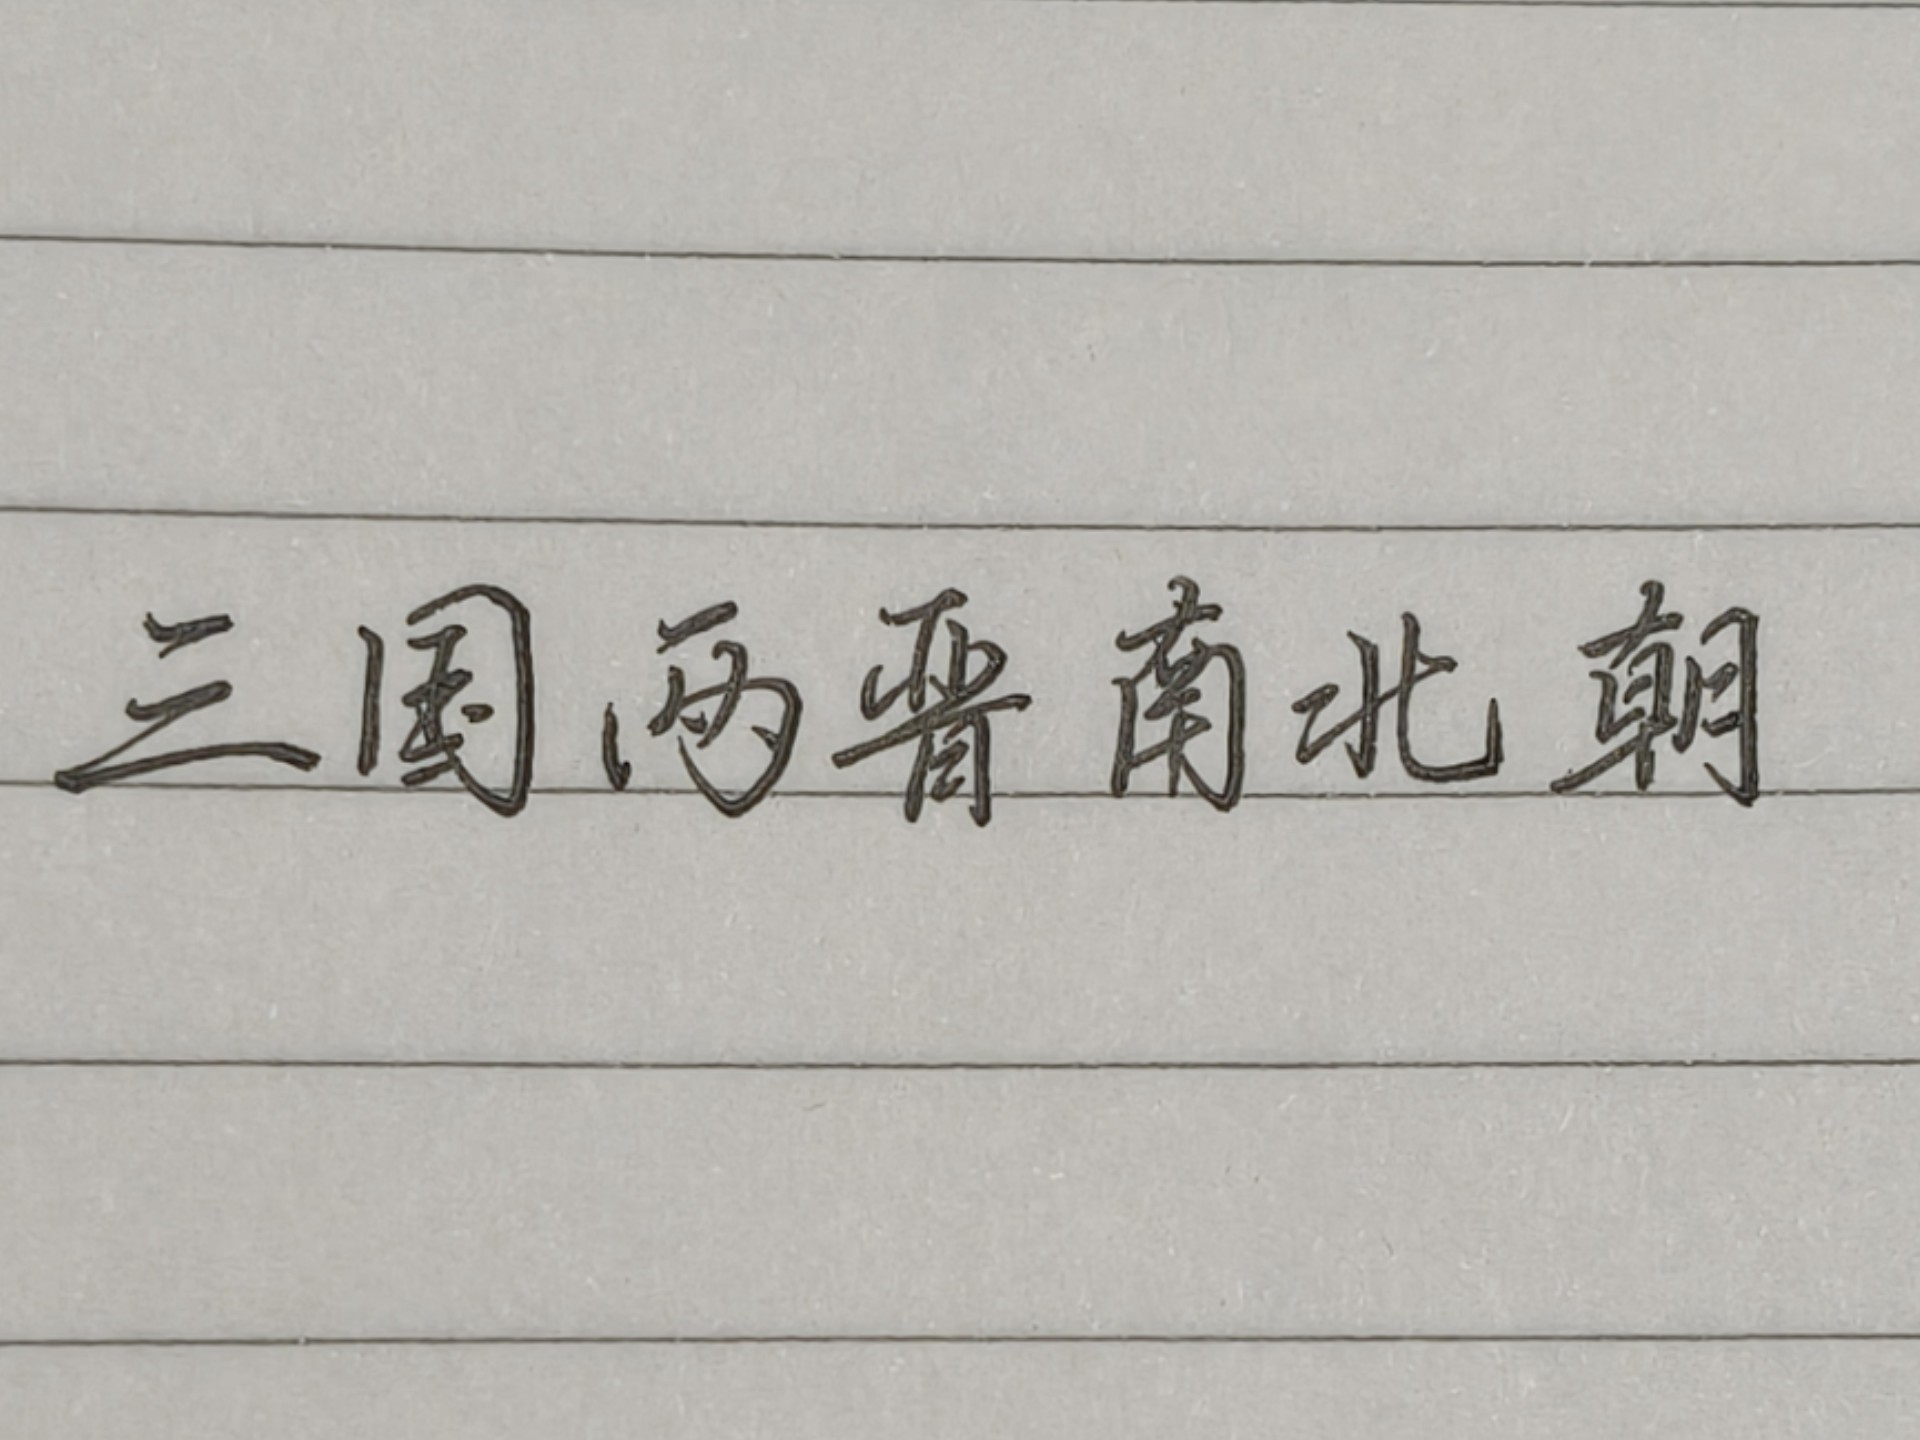 三国两晋南北朝